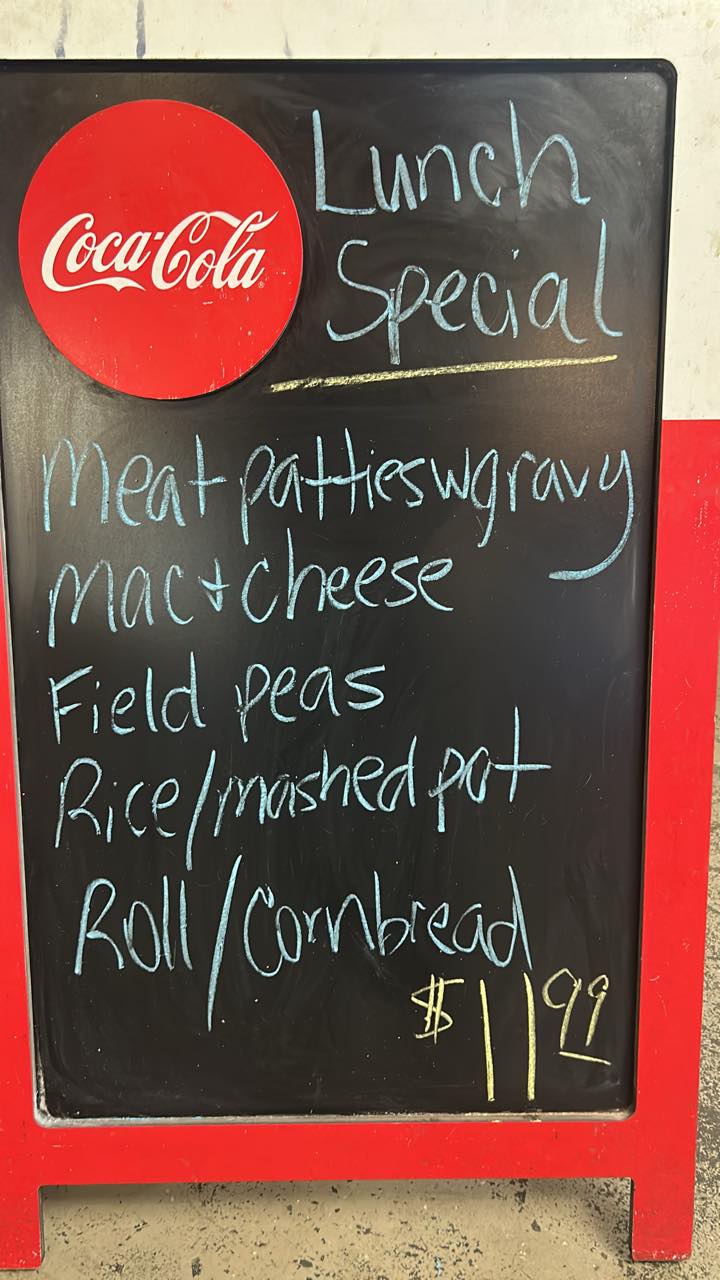 Coca-Cola
Lunch
Special
Meat patties w gravy
Mac + cheese
Field peas
Rice/mashed pot
Roll/Cornbread
$11.99